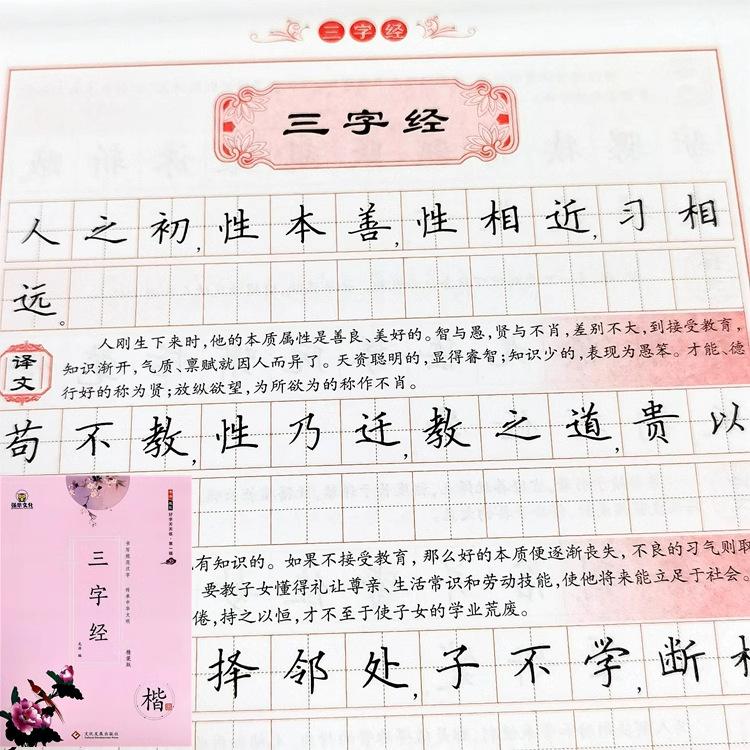 三字经
三字经
人之初，性本善，性相近，习相
远。
译文
人刚生下来时，他的本质属性是善良、美好的。智与愚，贤与不肖，差别不大，到接受教育，
知识渐开，气质、禀赋就因人而异了。天资聪明的，显得睿智；知识少的，表现为愚笨。才能、德
行好的称为贤；放纵欲望，为所欲为的称作不肖。
苟不教，性乃迁，教之道，贵以
有知识的。如果不接受教育，那么好的本质便逐渐丧失，不良的习气则取
要教子女懂得礼让尊亲、生活常识和劳动技能，使他将来能立足于社会。
倦，持之以恒，才不至于使子女的学业荒废。
择邻处，子不学，断
三字经
精装版
楷
文化发展出版社